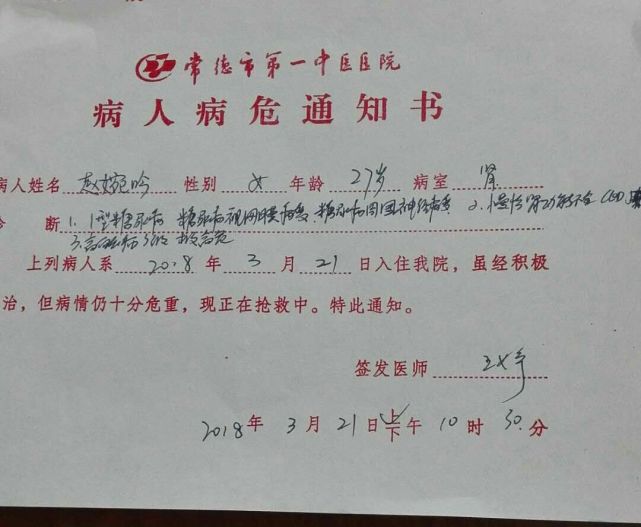 常德市第一中医医院
病人病危通知书
病人姓名 赵婉吟 性别 女 年龄 27岁 病室 肾
断 1.1型糖尿病 糖尿病视网膜病变 糖尿病周围神经病变 2.慢性肾功能不全 CKD
3.高血压病3级 极高危
上列病人系 2018 年 3 月 21 日入住我院，虽经积极
治，但病情仍十分危重，现正在抢救中。特此通知。
签发医师
2018年 3月 21日上下午 10时 30分